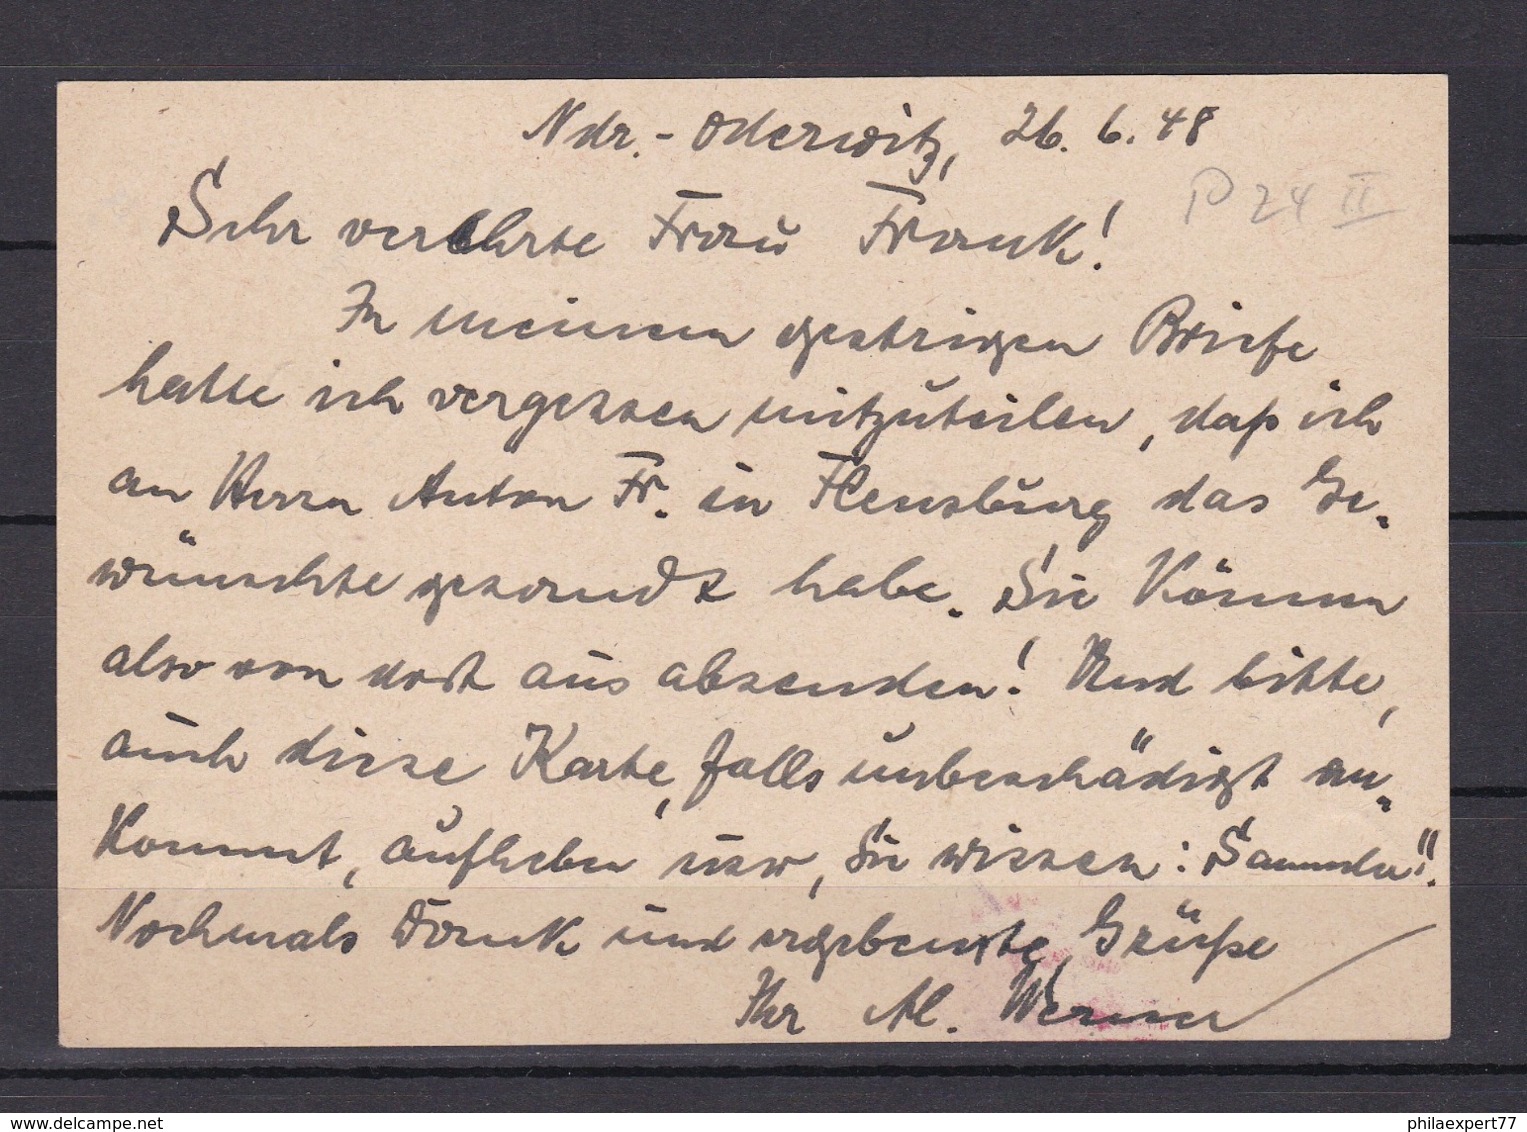 Ndr.-Oderwitz, 26.6.48
P 24 II
Sehr verehrte Frau Frank!
In meinem gestrigen Briefe
hatte ich vergessen mitzuteilen, daß ich
an Herrn Anton Fr. in Flensburg das Ge-
wünschte gesandt habe. Sie können
also von dort aus absenden! Und bitte,
auch diese Karte, falls unbeschädigt an-
kommt, aufheben usw, Sie wissen: Sammler!!.
Nochmals Dank und ergebenste Grüße
Ihr Al. Werner
delcampe.net
philaexpert77